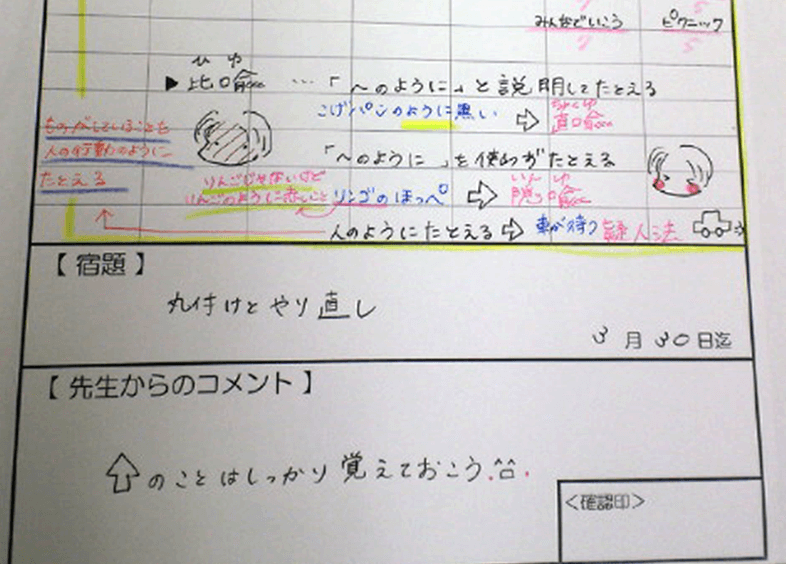 みんなでいこう ピクニック
7 5
ひゆ
▶比喩…「~のように」と説明してたとえる
こげパンのように黒い ⇨ 直喩
ちょくゆ
ものがしていることを
人の行動のように
たとえる
「~のように」を使わずたとえる
りんごじゃないけど
りんごのように赤いこと
リンゴのほっぺ ⇨ 隠喩
いんゆ
人のようにたとえる ⇨ 車が待つ 擬人法
【宿題】
丸付けとやり直し
3月30日迄
【先生からのコメント】
⇧のことはしっかり覚えておこう.^^.
<確認印>